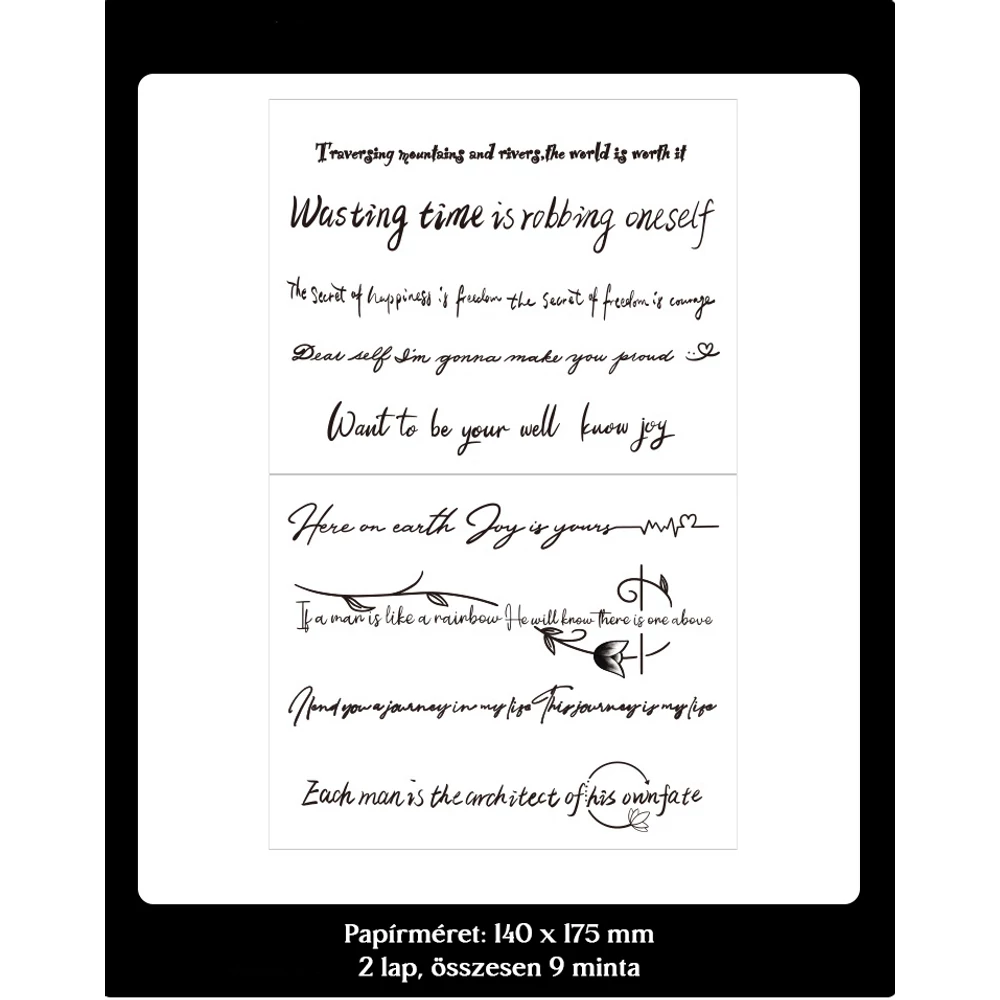 Traversing mountains and rivers,the world is worth it
Wasting time is robbing oneself
The secret of happiness is freedom the secret of freedom is courage
Dear self I'm gonna make you proud
Want to be your well know joy
Here on earth Joy is yours
If a man is like a rainbow He will know there is one above
you a journey in my life This journey is my life
Each man is the architect of his own fate
Papírméret: 140 x 175 mm
2 lap, összesen 9 minta